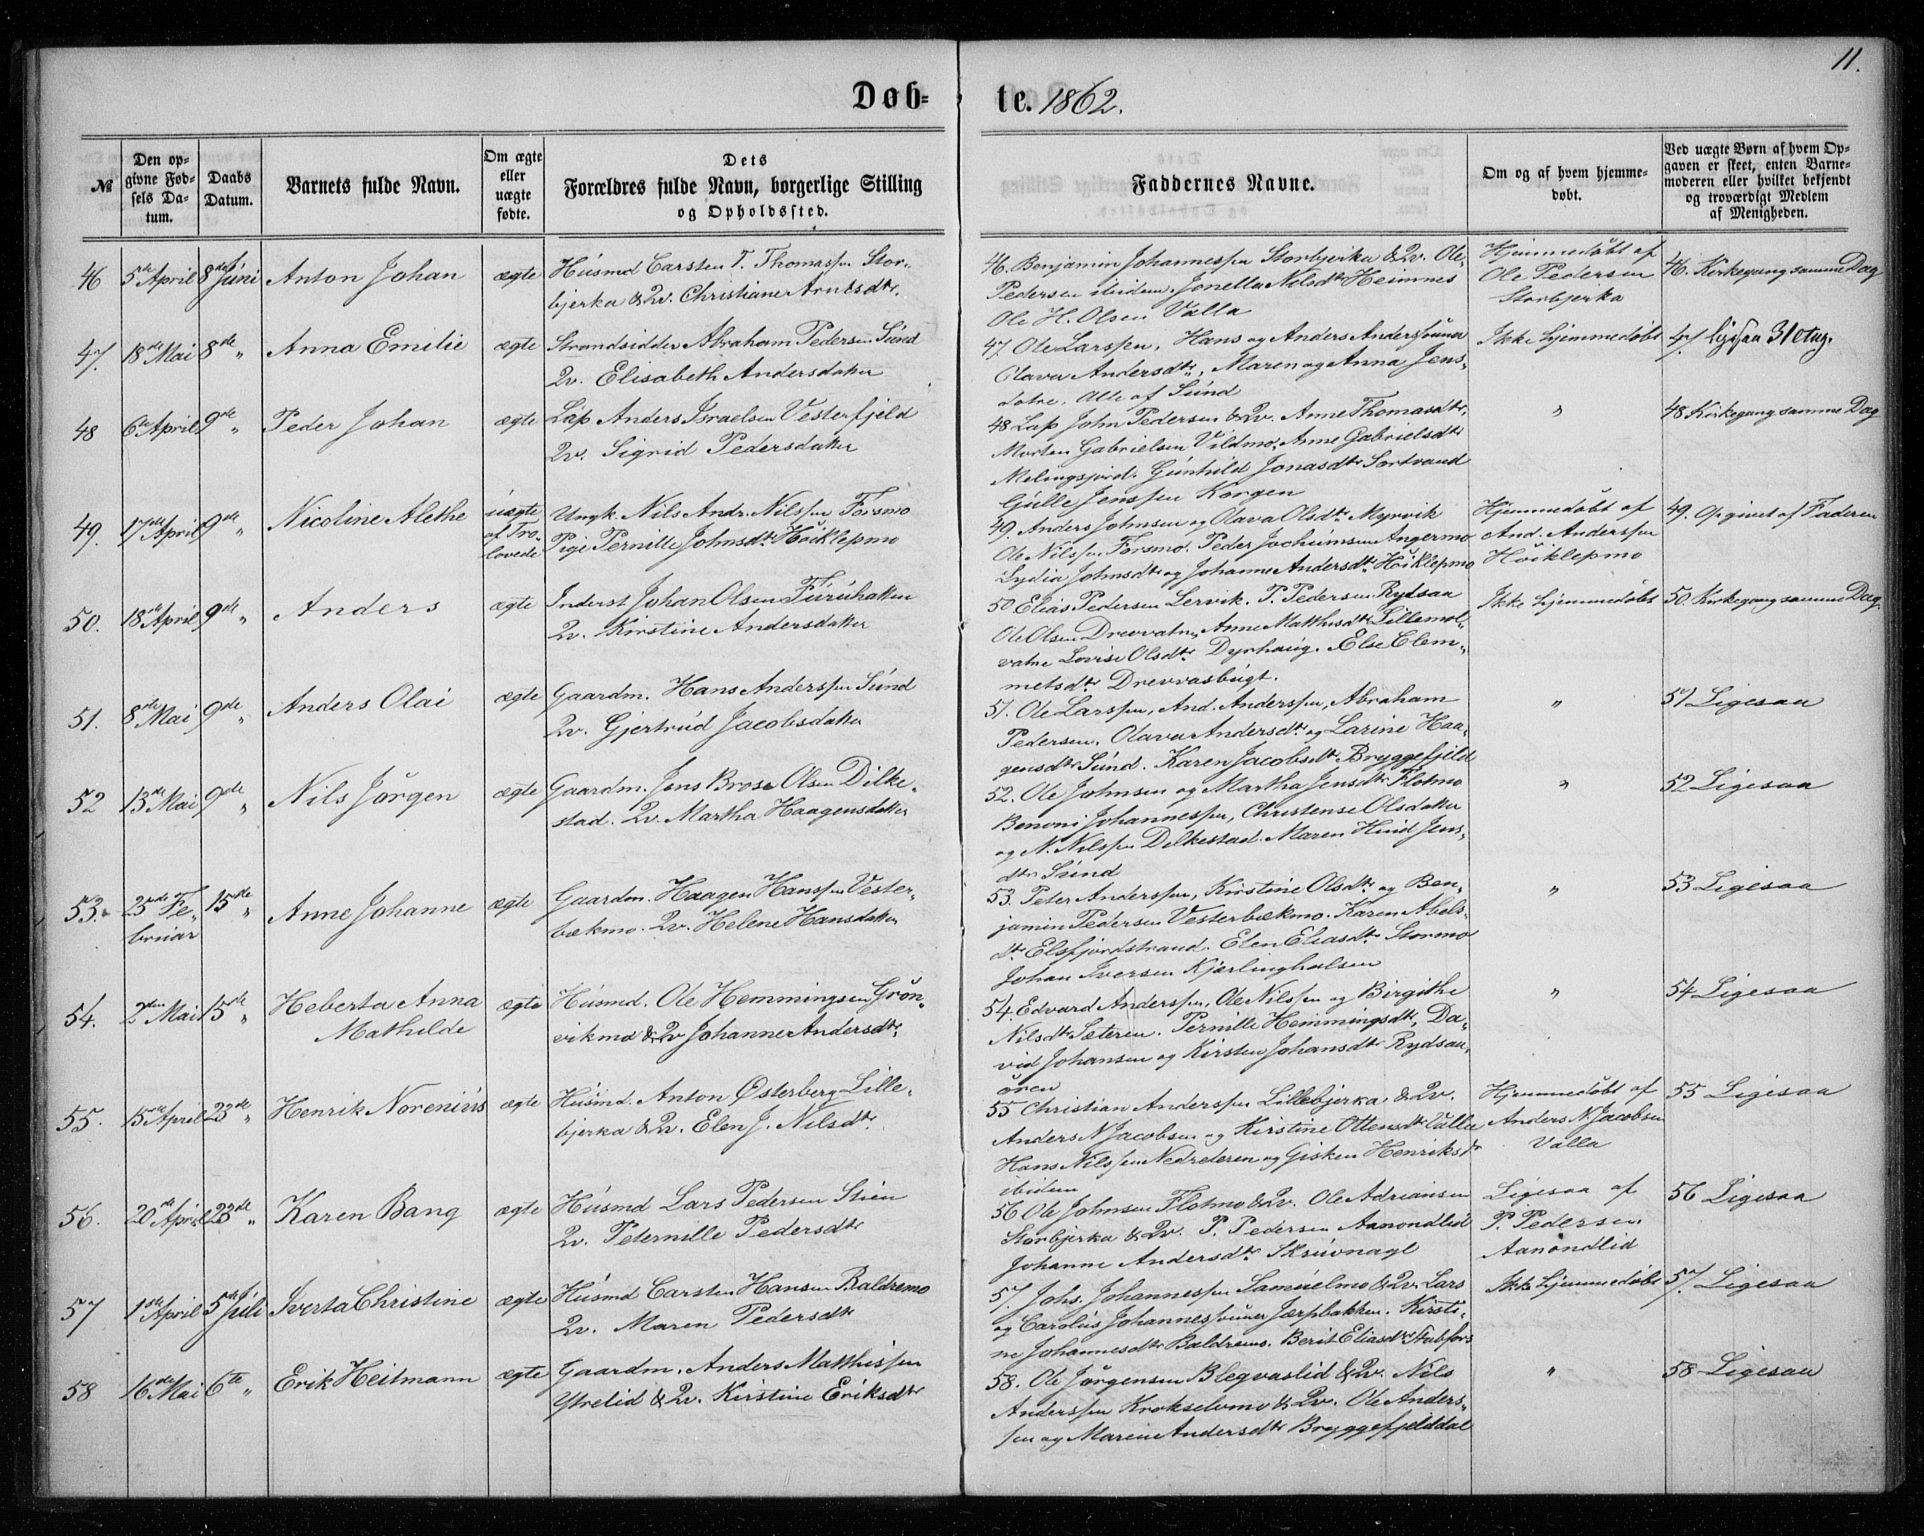 11.
Døb-te. 1862.
№
Den opgivne Fødsels Datum.
Daabs Datum.
Barnets fulde Navn.
Om ægte eller uægte fødte.
Dets Forældres fulde Navn, borgerlige Stilling og Opholdssted.
Faddernes Navne.
Om og af hvem hjemmedøbt.
Ved uægte Børn af hvem Opgaven er skeet, enten Barnemoderen eller hvilket bekjendt og troværdigt Medlem af Menigheden.
46 5de April 8de Juni Anton Johan ægte Husmd Carsten T. Thomassen Stor-
bjerka & Qv. Christiane Arntsdtr.
46. Benjamin Johannessen Storbjerka & Qv. Ole
Pedersen ibidem. Jonella Nilsdtr Heimnes
Ole H. Olsen Valla
Hjemmedøbt af
Ole Pedersen
Storbjerka
46. Kirkegang samme Dag
47. 18de Mai 8de " Anna Emilie ægte Strandsidder Abraham Pedersen Sund
Qv. Elisabeth Andersdatter
47 Ole Larssen, Hans og Anders Anderssønner
Olava Andersdtr, Maren og Anna Jens-
døtre, Alle af Sund
Ikke hjemmedøbt
47 ligesaa
48 6te April 9de " Peder Johan ægte Lap Anders Israelsen Vesterfjeld
Qv. Sigrid Pedersdatter
48 Lap John Pedersen & Qv. Anne Thomasdtr,
Morten Gabrielsen Vildmo, Anne Gabrielsdtr
Melingsjord. Gunhild Jonasdtr Sortvand
Gulle Jenssen Korgen
"
48 Kirkegang samme Dag
49. 17de April 9de " Nicoline Alethe uægte
af Tro-
lovede
Ungk. Nils Andr. Nilssen Forsmo
Pige Pernille Johnsdtr Höiklepmo
49. Anders Johnsen og Olava Olsdtr Myrvik
Ole Nilssen Forsmo. Peder Jochumsen Angermo
Lydia Johnsdtr og Johanne Andersdtr Höiklepmo
Hjemmedøbt af
And. Anderssen
Höiklepmo
49. Opgivet af Faderen
50. 18de April 9de " Anders ægte Inderst Johan Olsen Furuhatten
Qv. Kirstine Andersdatter
50 Elias Pedersen Lervik. P. Pedersen Rydsaa
Ole Olsen Drevvatn, Anne Matthisdtr Lillemol-
vatne Lovise Olsdtr Dyrhaug. Else Clem-
metsdtr Drevvasbugt.
Ikke hjemmedøbt
50. Kirkegang samme Dag.
51. 8de Mai 9de " Anders Olai ægte Gaardm. Hans Anderssen Sund
Qv. Gjertrud Jacobsdatter
51. Ole Larssen, And. Anderssen, Abraham
Pedersen, Olava Andersdtr og Larine Haa-
gensdtr Sund. Karen Jacobsdtr Bryggefjeld
"
51 Ligesaa
52 13de Mai 9de " Nils Jørgen ægte Gaardm. Jens Brose Olsen Dilke-
stad. Qv. Martha Haagensdatter
52. Ole Johnsen og Martha Jensdtr Flotmo
Benoni Johannessen, Christense Olsdatter
og N. Nilssen Dilkestad. Maren Hind Jens-
dtr Sund
"
52 Ligesaa
53. 25de Fe-
bruar 15de " Anne Johanne ægte Gaardm. Haagen Hanssen Vester-
bækmo. Qv. Helene Hansdatter
53. Peter Anderssen, Kirstine Olsdtr og Ben-
jamin Pedersen Vesterbækmo. Karen Abels-
dtr Elsfjordstrand. Elen Eliasdtr Stormo
Johan Iversen Kjærlinghalsen
"
53 Ligesaa
54. 2den Mai 15de " Heberta Anna
Mathilde
ægte Husmd. Ole Hemmingsen Grøn-
vikmo & Qv Johanne Andersdtr.
54. Edvard Anderssen, Ole Nilssen og Birgithe
Nilsdtr Sæteren. Pernille Hemmingsdtr, Da-
vid Johansen og Kirsten Johansdtr Rydsaa-
ören
"
54 Ligesaa
55. 15de April 23de " Henrik Norenius ægte Husmd. Anton Østerberg Lille-
bjerka & Qv. Elen J. Nilsdtr
55 Christian Anderssen Lillebjerka & Qv.
Anders N Jacobsen og Kirstine Ottensdtr Valla
Hans Nilssen Nedrederen og Gisken Henriksdtr
ibidem
Hjemmedøbt af
Anders N. Jacobsen
Valla
55 Ligesaa
56. 20de April 23de " Karen Bang ægte Husmd Lars Pedersen Stien
Qv. Peternille Pedersdtr
56 Ole Johnsen Flotmo & Qv. Ole Adriansen
Storbjerka & Qv. P. Pedersen Aanondlid
Johanne Andersdtr Skruvnagl
Ligesaa af
P. Pedersen
Aanondlid
56 Ligesaa
57 1ste April 5te Juli Iverta Christine ægte Husmd Carsten Hansen Baldremo
Qv. Maren Pedersdtr
57. Johs. Johannessen Samuelmo & Qv. Lars
og Carolus Johannessønner Jærpbakken. Kirsti-
ne Johannesdtr Baldremo. Berit Eliasdtr Stabfors
Ikke hjemmedøbt
57. Ligesaa
58 16de Mai 6te " Erik Heitmann ægte Gaardm. Anders Matthissen
Ytrelid & Qv. Kirstine Eriksdtr
58. Ole Jørgensen Blegvaslid & Qv. Nils
Anderssen Krokselvmo & Qv. Ole Anders-
sen og Maren Andersdtr Bryggefjelddal
"
58 Ligesaa